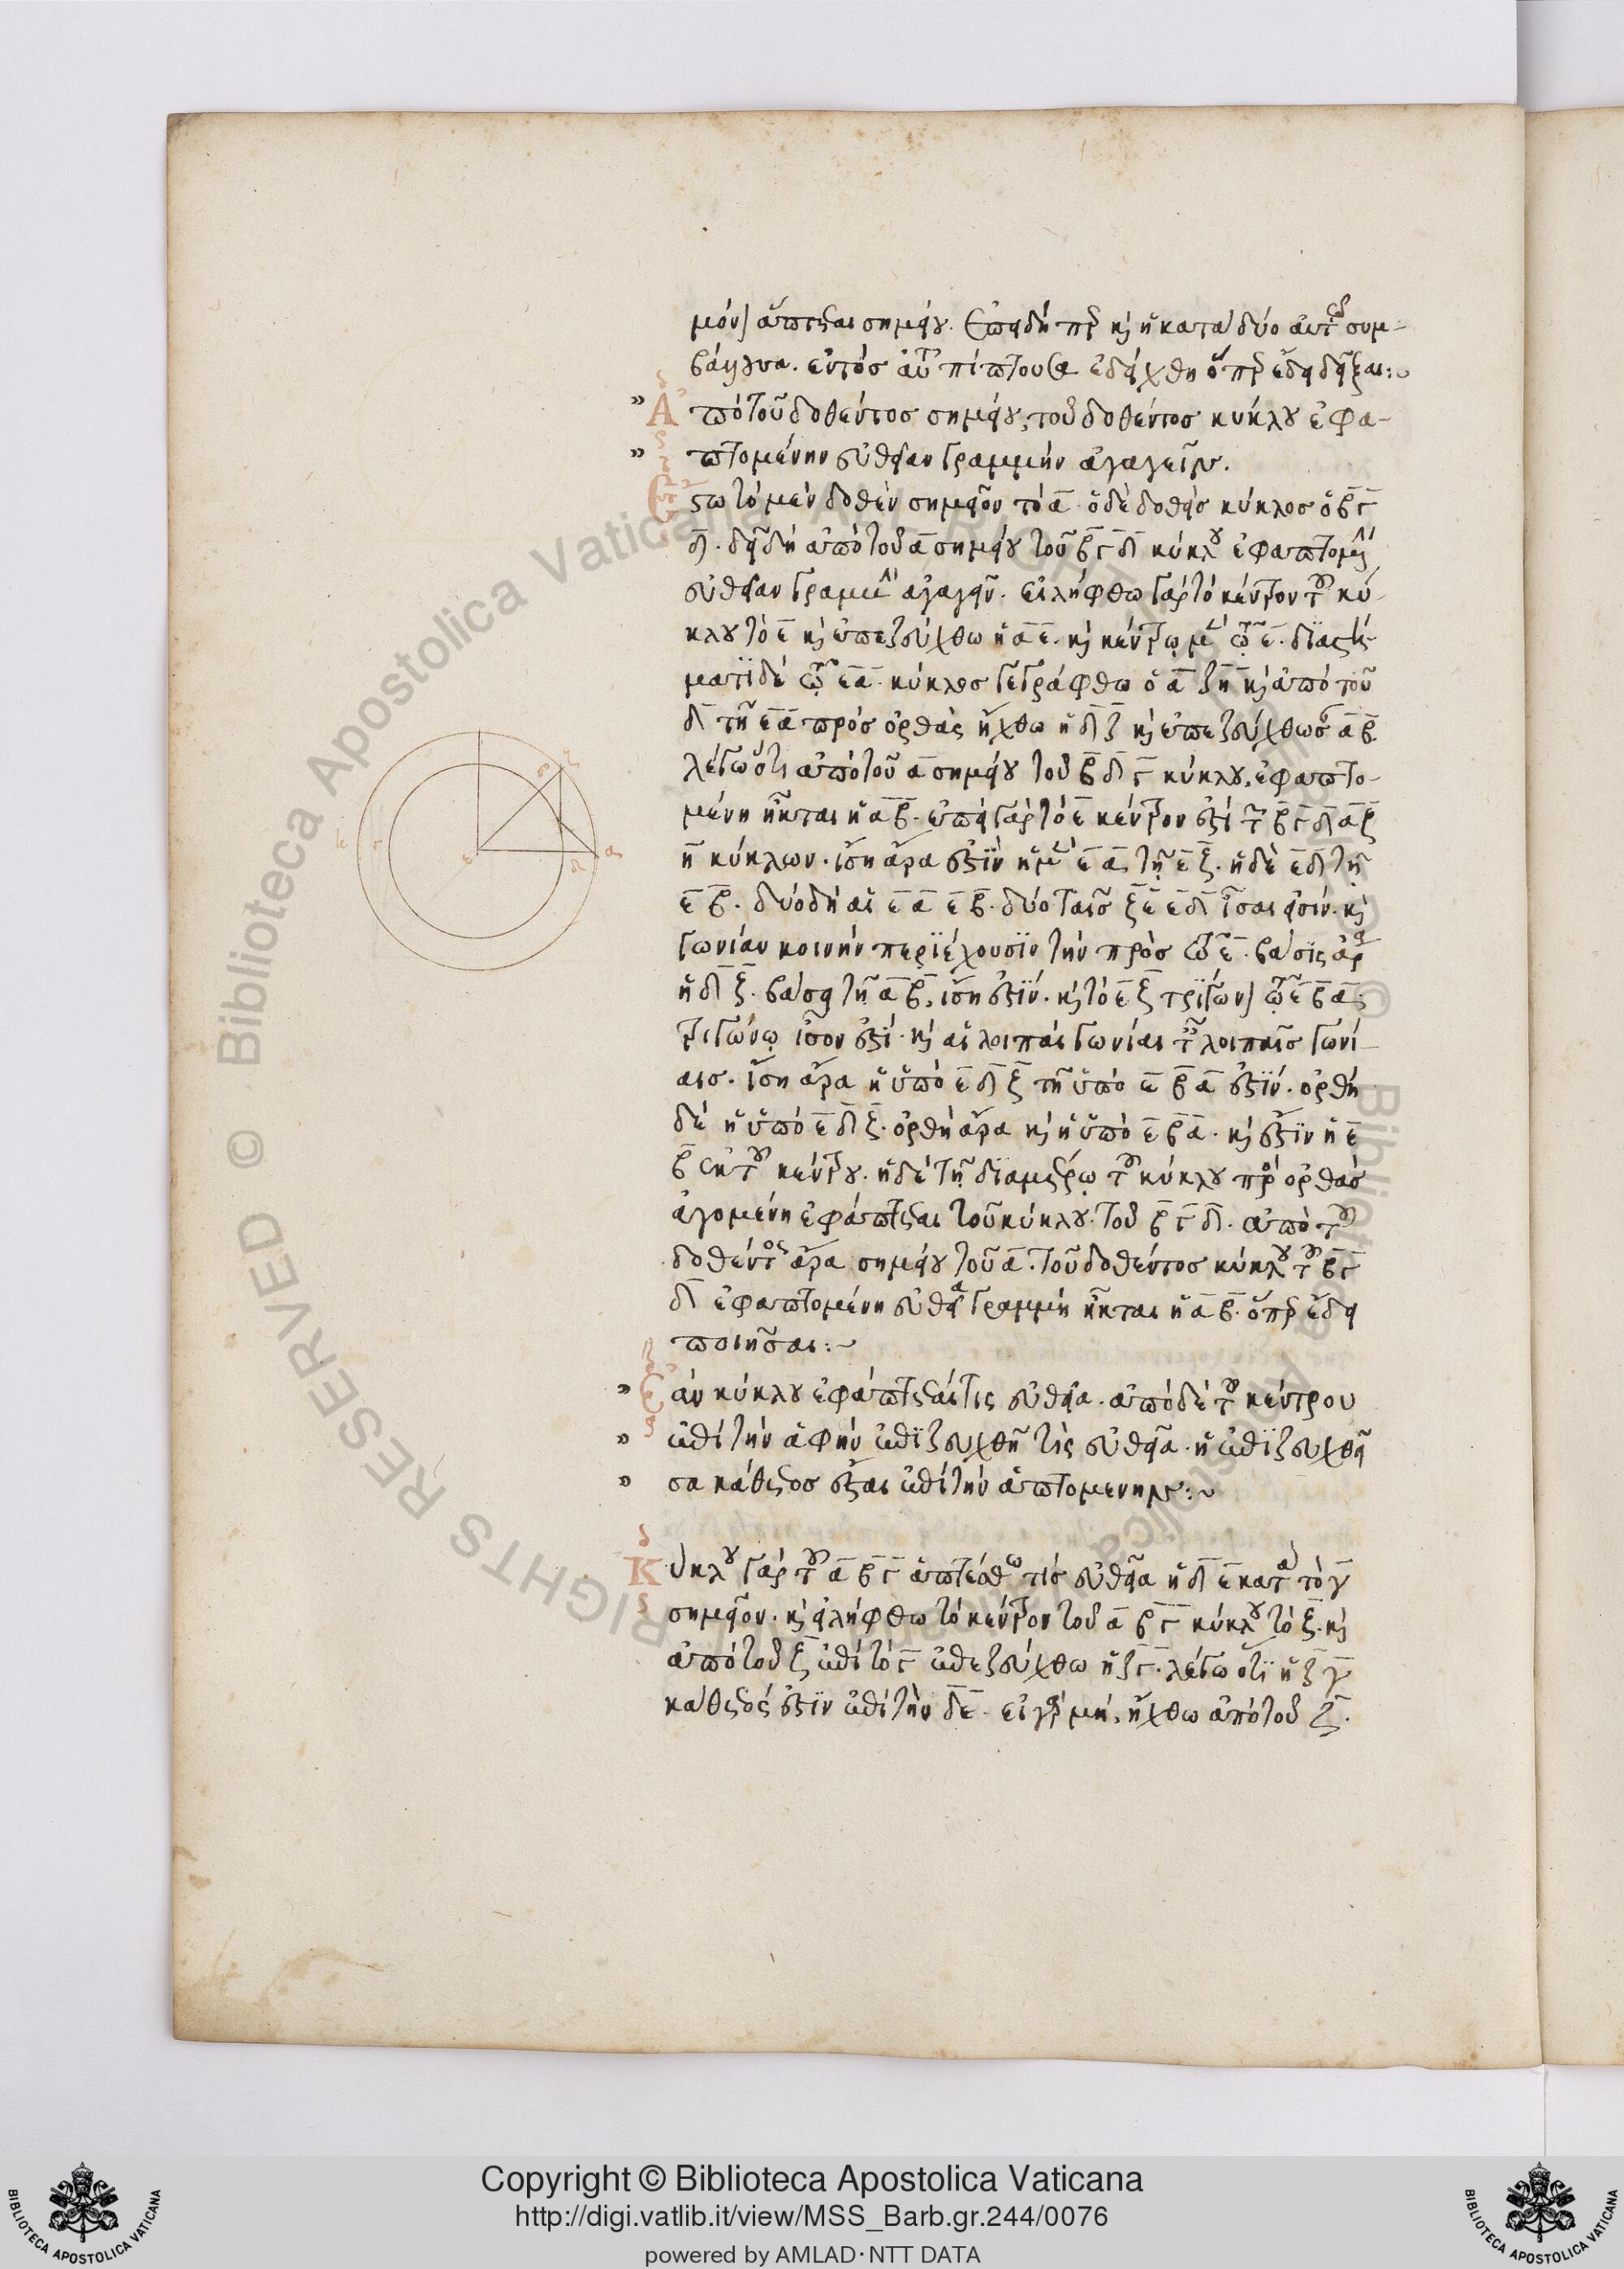 μόνον ἅπτεται σημείου. Ἐπειδήπερ καὶ ἡ κατὰ δύο αὐτῷ συμ-
βάλλουσα. ἐντὸς αὐτοῦ πίπτουσα ἐδείχθη ὅπερ ἔδει δεῖξαι:~
Ἀπὸ τοῦ δοθέντος σημείου, τοῦ δοθέντος κύκλου ἐφα-
πτομένην εὐθεῖαν γραμμὴν ἀγαγεῖν.
Ἔστω τὸ μὲν δοθὲν σημεῖον τὸ α. ὁ δὲ δοθεὶς κύκλος ὁ βγ
δ. δεῖ δὴ ἀπὸ τοῦ α σημείου τοῦ βγδ κύκλου ἐφαπτομένην
εὐθεῖαν γραμμὴν ἀγαγεῖν. εἰλήφθω γὰρ τὸ κέντρον τοῦ κύ
κλου τὸ ε καὶ ἐπεζεύχθω ἡ α ε. καὶ κέντρῳ μὲν τῷ ε. διαστή
ματι δὲ τῷ ε α. κύκλος γεγράφθω ὁ α ζη καὶ ἀπὸ τοῦ
δ τῇ ε α πρὸς ὀρθὰς ἤχθω ἡ δ ζ καὶ ἐπεζεύχθωσαν α β
λέγω ὅτι ἀπὸ τοῦ α σημείου τοῦ β δ γ κύκλου, ἐφαπτο-
μένη ἦκται ἡ α β. ἐπεὶ γὰρ τὸ ε κέντρον ἐστὶ τῶν β γ δ α ζ
η κύκλων. ἴση ἄρα ἐστὶν ἡ μὲν ε α τῇ ε ζ. ἡ δὲ ε δ τῇ
ε β. δύο δὴ αἱ ε α ε β. δύο ταῖς ζ ε ε δ ἴσαι εἰσίν. καὶ
γωνίαν κοινὴν περιέχουσιν τὴν πρὸς τῷ ε. βάσις ἄρα
ἡ δ ζ. βάσει τῇ α β, ἴση ἐστίν. καὶ τὸ ε ζ τρίγωνον τῷ ε β α
τριγώνῳ ἴσον ἐστί. καὶ αἱ λοιπαὶ γωνίαι ταῖς λοιπαῖς γωνί
αις. ἴση ἄρα ἡ ὑπὸ ε δ ζ τῇ ὑπὸ ε β α ἐστίν. ὀρθὴ
δὲ ἡ ὑπὸ ε δ ζ. ὀρθὴ ἄρα καὶ ἡ ὑπὸ ε β α. καὶ ἔστιν ἡ ε
β ἐκ τοῦ κέντρου. ἡ δὲ τῇ διαμέτρῳ τοῦ κύκλου πρὸς ὀρθὰς
ἀγομένη ἐφάπτεται τοῦ κύκλου. τοῦ β γ δ. ἀπὸ τοῦ
δοθέντος ἄρα σημείου τοῦ α. τοῦ δοθέντος κύκλου τοῦ β γ
δ ἐφαπτομένη εὐθεῖα γραμμὴ ἦκται ἡ α β. ὅπερ ἔδει
ποιῆσαι:~
Ἐὰν κύκλου ἐφάπτεταί τις εὐθεῖα. ἀπὸ δὲ τοῦ κέντρου
ἐπὶ τὴν ἁφὴν ἐπιζευχθῇ τις εὐθεῖα. ἡ ἐπιζευχθεῖ
σα κάθετος ἔσται ἐπὶ τὴν ἁπτομένην:~
Κύκλου γὰρ τοῦ α β γ ἁπτέσθω τις εὐθεῖα ἡ δ ε κατὰ τὸ γ
σημεῖον. καὶ εἰλήφθω τὸ κέντρον τοῦ α β γ κύκλου τὸ ζ. καὶ
ἀπὸ τοῦ ζ ἐπὶ τὸ γ ἐπεζεύχθω ἡ ζ γ. λέγω ὅτι ἡ ζ γ
κάθετός ἐστιν ἐπὶ τὴν δε. εἰ γὰρ μή, ἤχθω ἀπὸ τοῦ ζ.
© Biblioteca Apostolica Vaticana
Copyright © Biblioteca Apostolica Vaticana
http://digi.vatlib.it/view/MSS_Barb.gr.244/0076
powered by AMLAD·NTT DATA
BIBLIOTECA APOSTOLICA VATICANA
BIBLIOTECA APOSTOLICA VATICANA